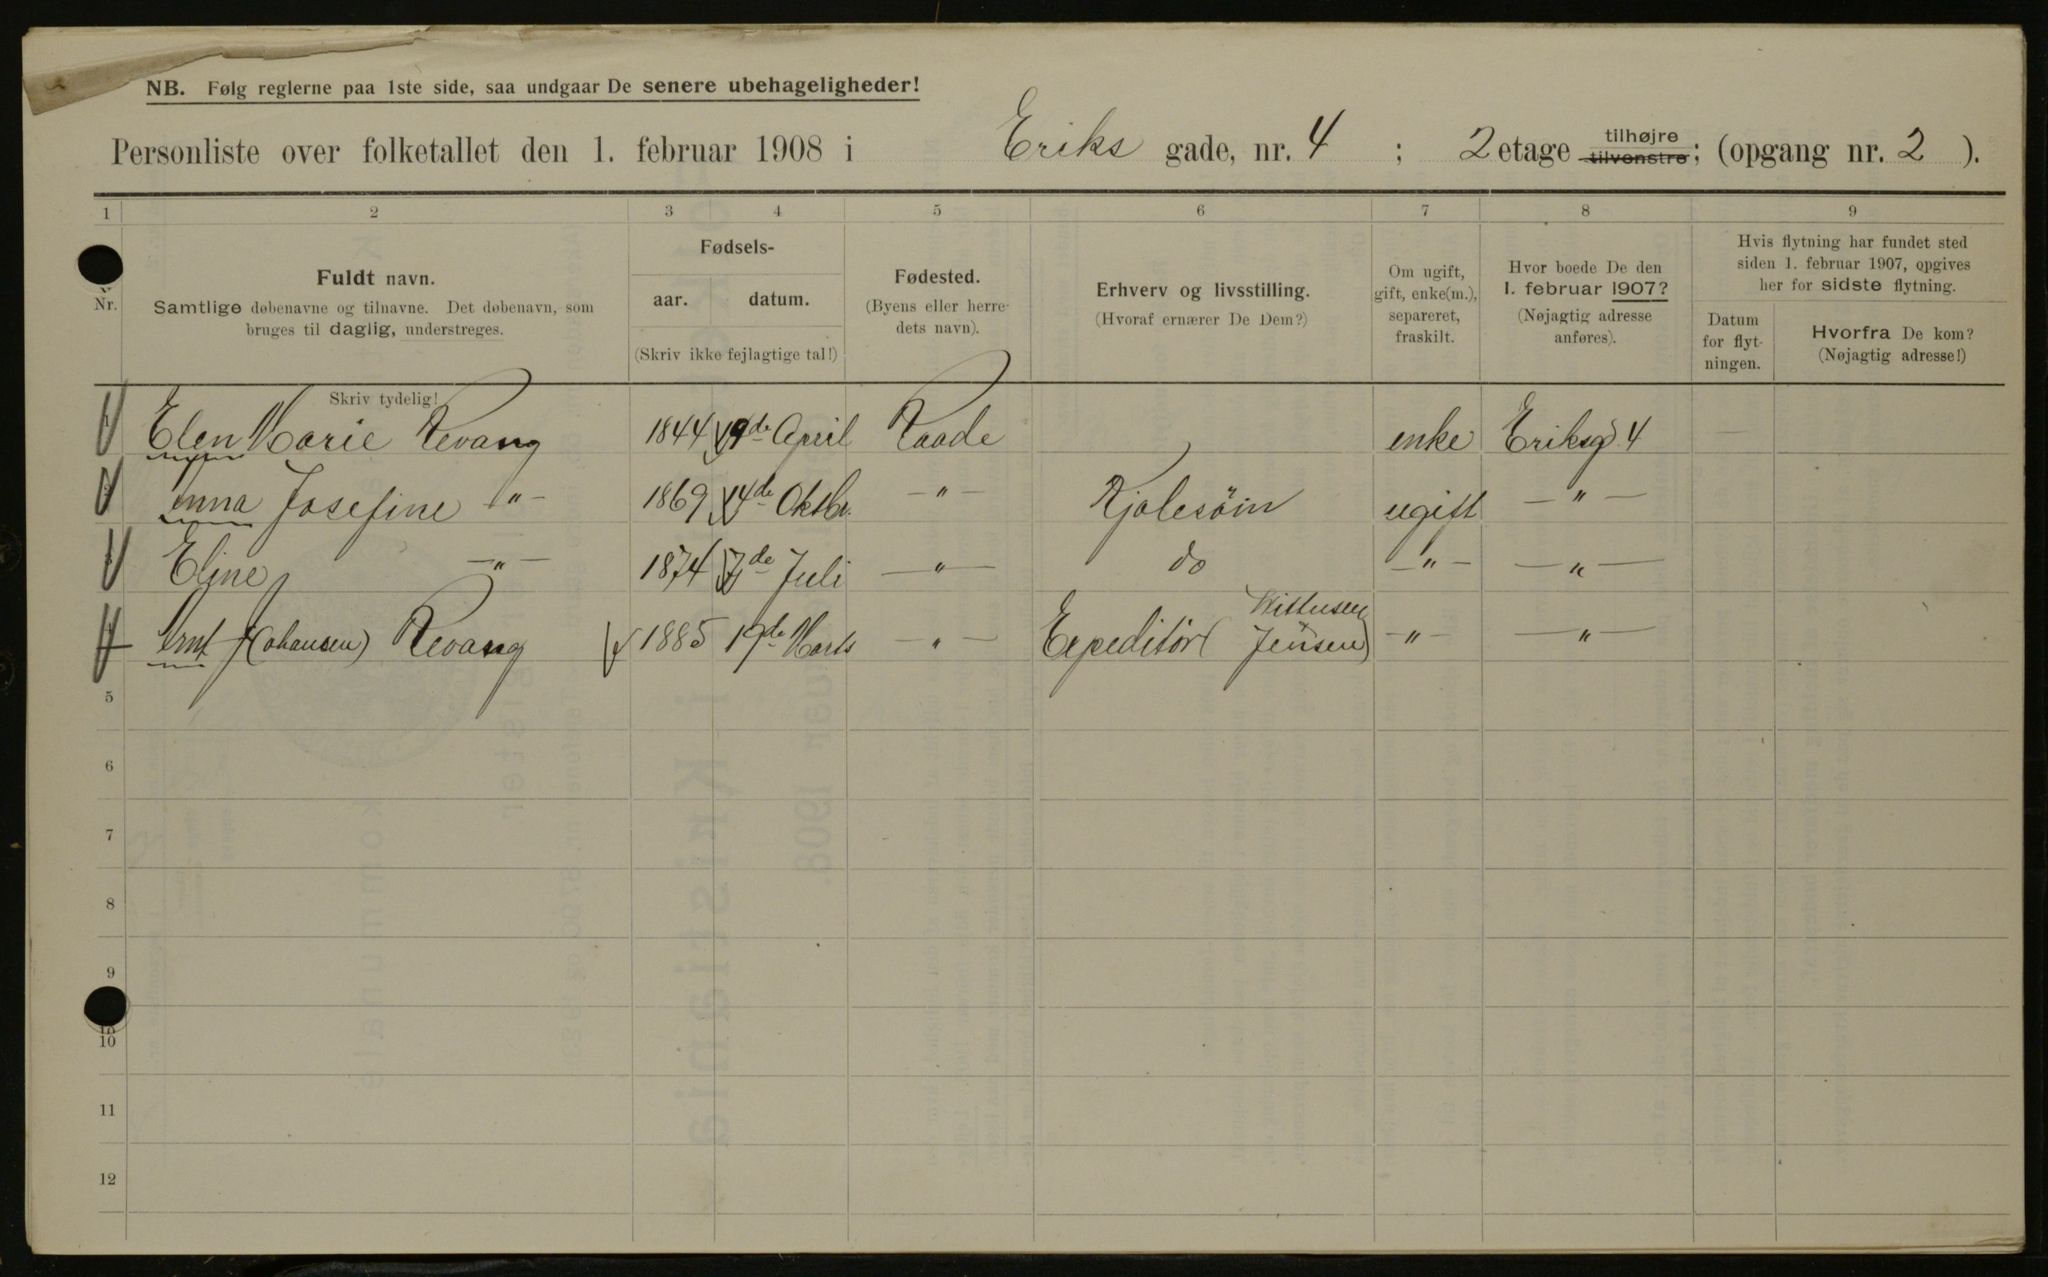 NB. Følg reglerne paa 1ste side, saa undgaar De senere ubehageligheder!
Personliste over folketallet den 1. februar 1908 i Eriks gade, nr. 4 ; 2 etage tilhøjre tilvenstre; (opgang nr. 2 ).
1 2 3 4 5 6 7 8 9
Nr.
Fuldt navn.
Samtlige døbenavne og tilnavne. Det døbenavn, som
bruges til daglig, understreges.
Fødsels-
aar. datum.
(Skriv ikke fejlagtige tal!)
Fødested.
(Byens eller herre-
dets navn).
Erhverv og livsstilling.
(Hvoraf ernærer De Dem?)
Om ugift,
gift, enke(m.),
separeret,
fraskilt.
Hvor boede De den
1. februar 1907?
(Nøjagtig adresse
anføres).
Hvis flytning har fundet sted
siden 1. februar 1907, opgives
her for sidste flytning.
Datum
for flyt-
ningen.
Hvorfra De kom?
(Nøjagtig adresse!)
Skriv tydelig!
Elen Marie Revang 1844 9de April Raade enke Eriksg 4 —
Anna Josefine —"— 1869 4de Oktbr. —"— Kjolesöm ugift —"—
Eline —"— 1874 7de Juli —"— do —"— —"—
Arnt J(ohansen) Revang 1885 19de Marts —"— Expeditör (Wittusen Jensen) —"— —"—
5
6
7
8
9
10
10
11
12